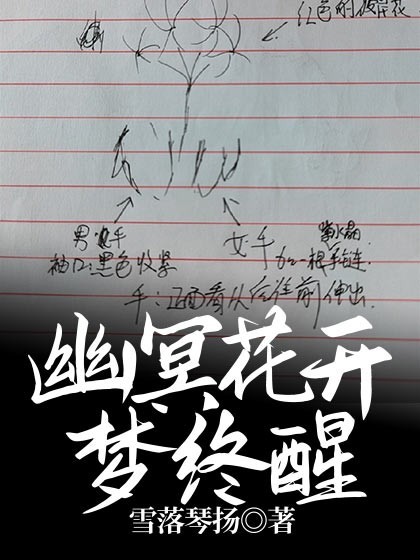 红色的彼岸花
男手
女手
紫水晶
袖口:黑色收紧
加一根手链.
手:正面看从后往前伸出.
幽冥花开
梦终醒
雪落琴扬◎著